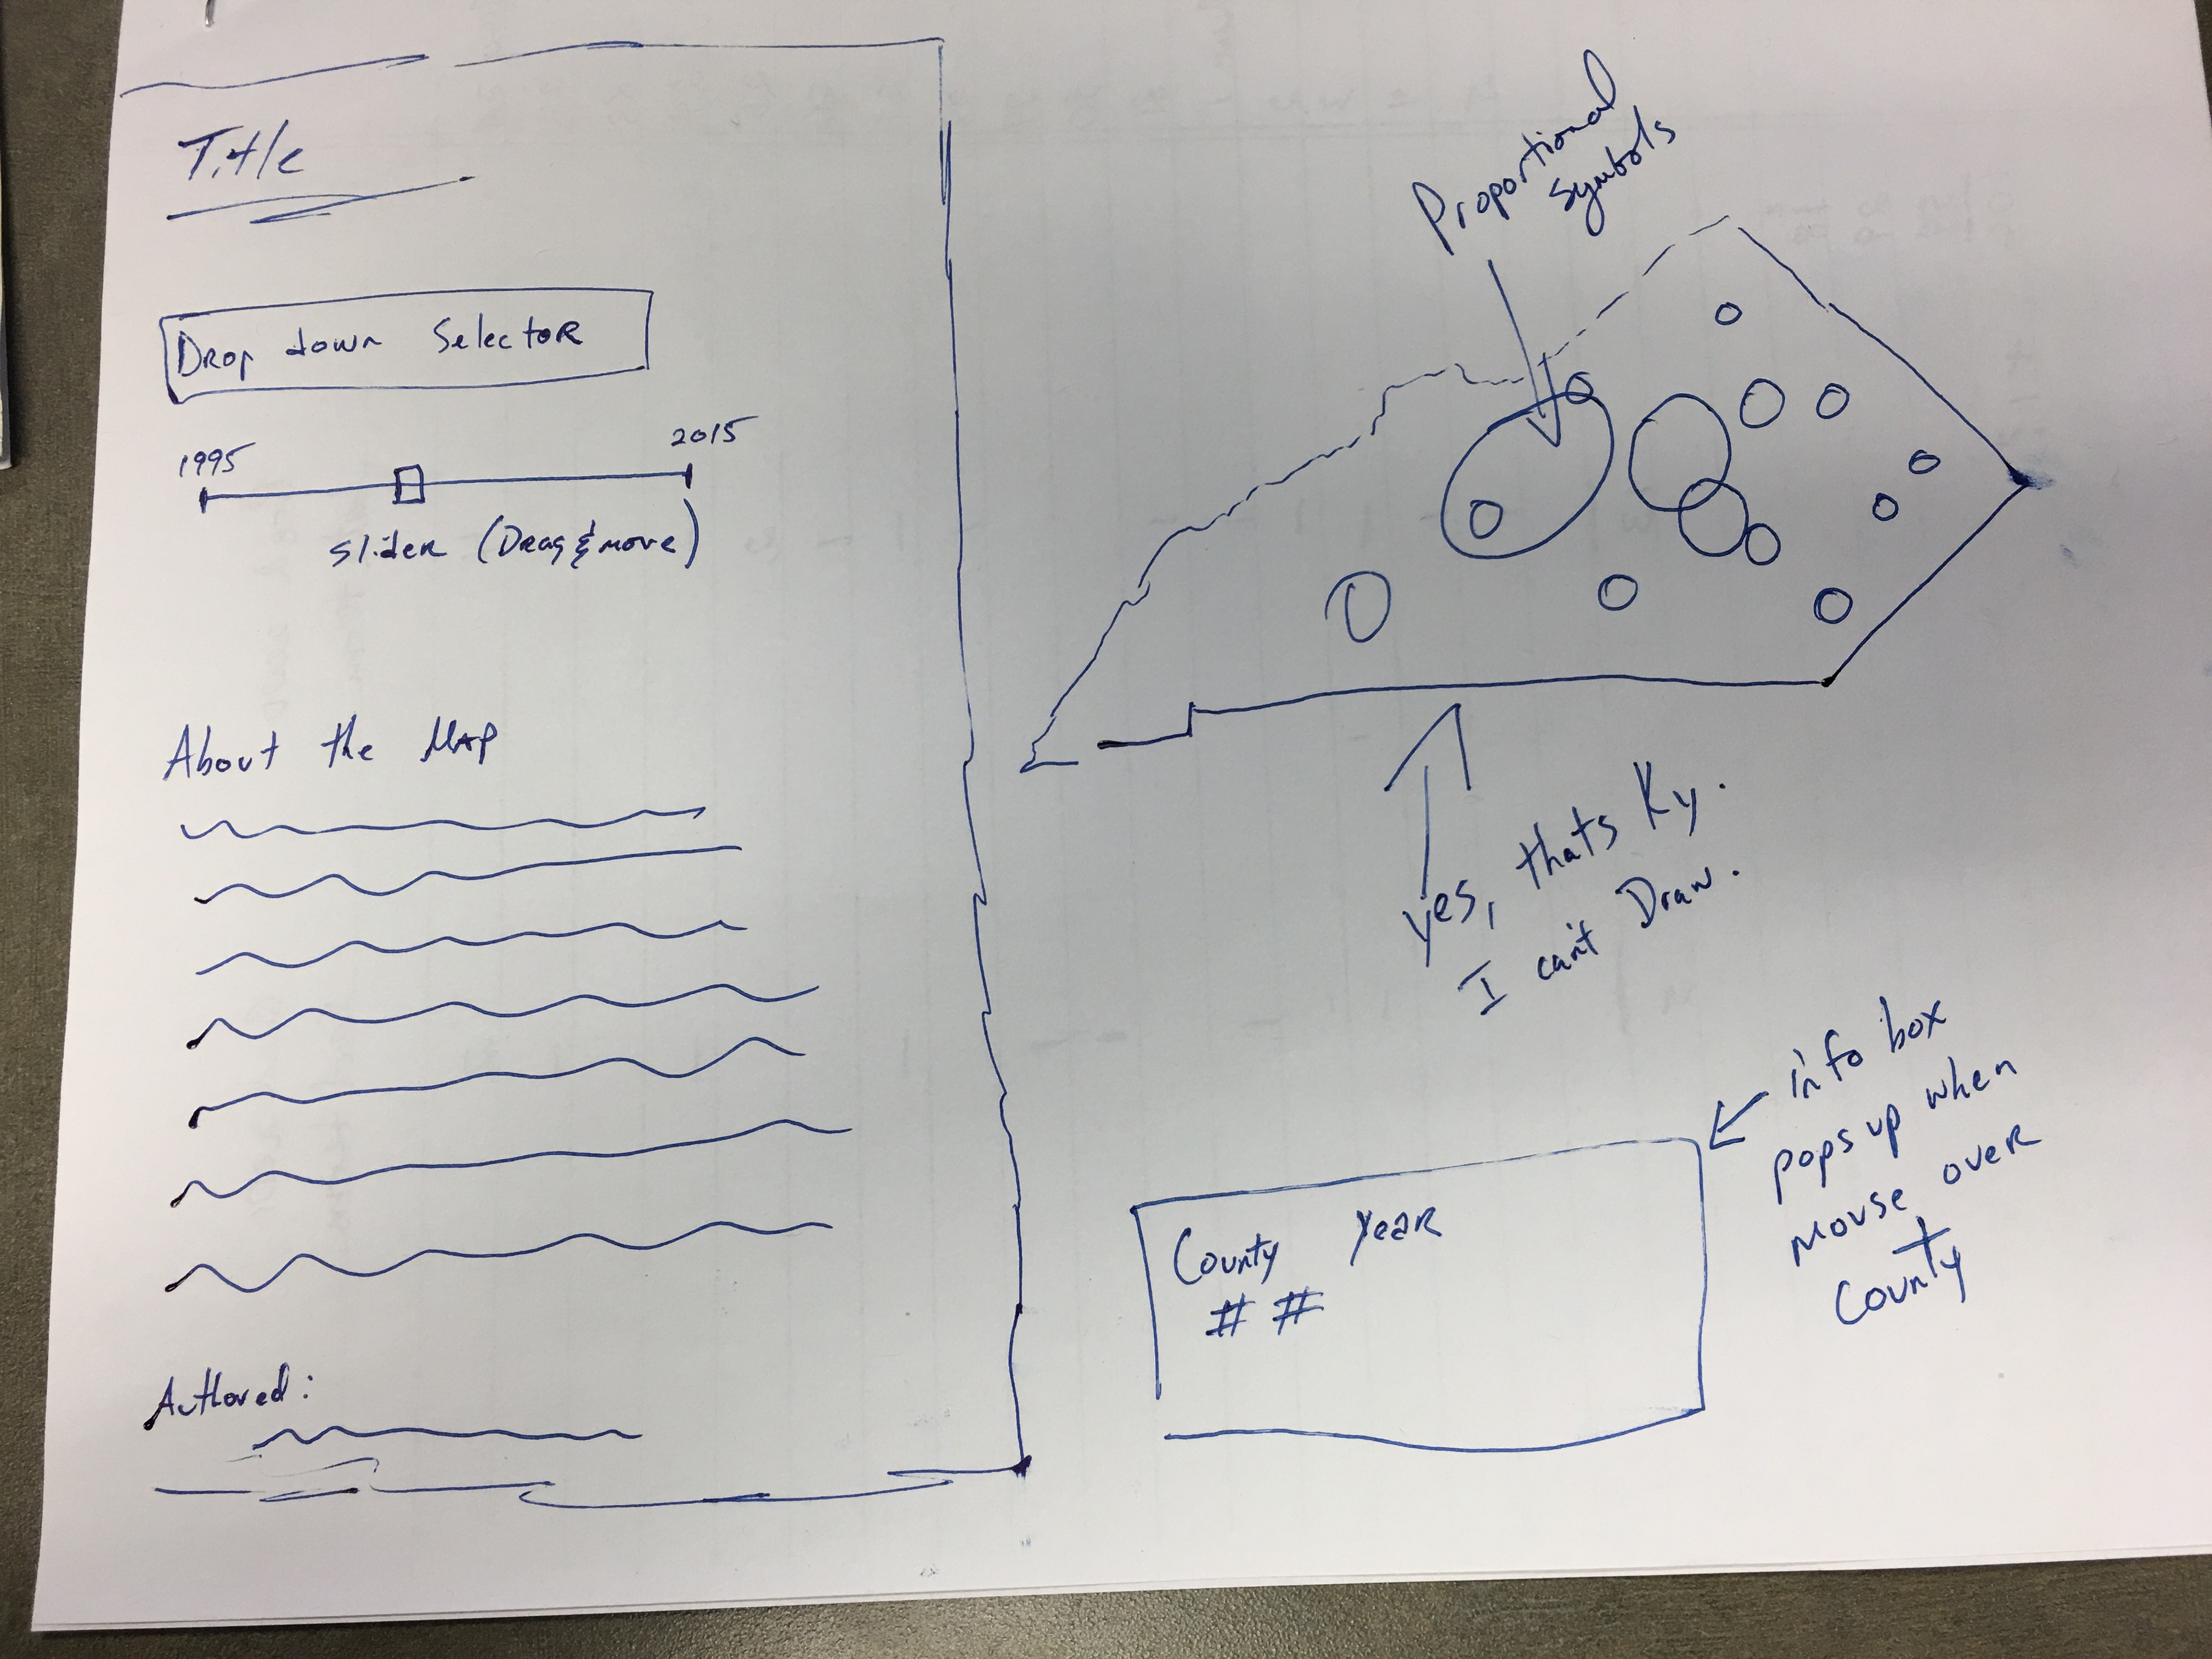 Title
Drop down Selector
1995
2015
Slider (Drag & move)
About the Map
Authored:
Proportional
Symbols
yes, thats Ky.
I can't Draw.
info box
pops up when
mouse over
County
County Year
# #